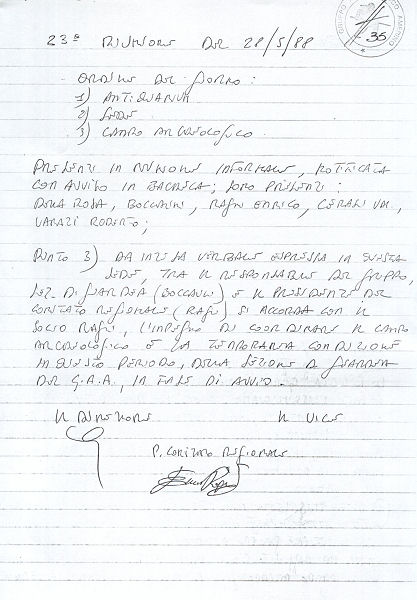 35
23ª RIUNIONE DEL 28/5/88
- ORDINE DEL GIORNO:
1) ANTIQUARIUM
2) SEDE
3) CAMPO ARCHEOLOGICO
PRESENTI IN RIUNIONE INFORMALE, NOTIFICATA
CON AVVISO IN BACHECA; SONO PRESENTI:
DELLA ROSA, BOCCALINI, RAGNI ENRICO,
VARAZI ROBERTO;
PUNTO 3) DA INTESA VERBALE ESPRESSA IN QUESTA
SEDE, TRA IL RESPONSABILE DEL GRUPPO,
SEZ. DI GIARDEA (BOCCALINI) E IL PRESIDENTE DEL
COMITATO REGIONALE (RAGNI) SI ACCORDA CON IL
SOCIO RAGNI, L'IMPEGNO DI COORDINARE IL CAMPO
ARCHEOLOGICO E LA TEMPORANEA CONDUZIONE
IN QUESTO PERIODO, DELLA SEZIONE DI
DEL G.A.A., IN FASE DI AVVIO.
IL DIRETTORE IL VICE
P. COMITATO REGIONALE